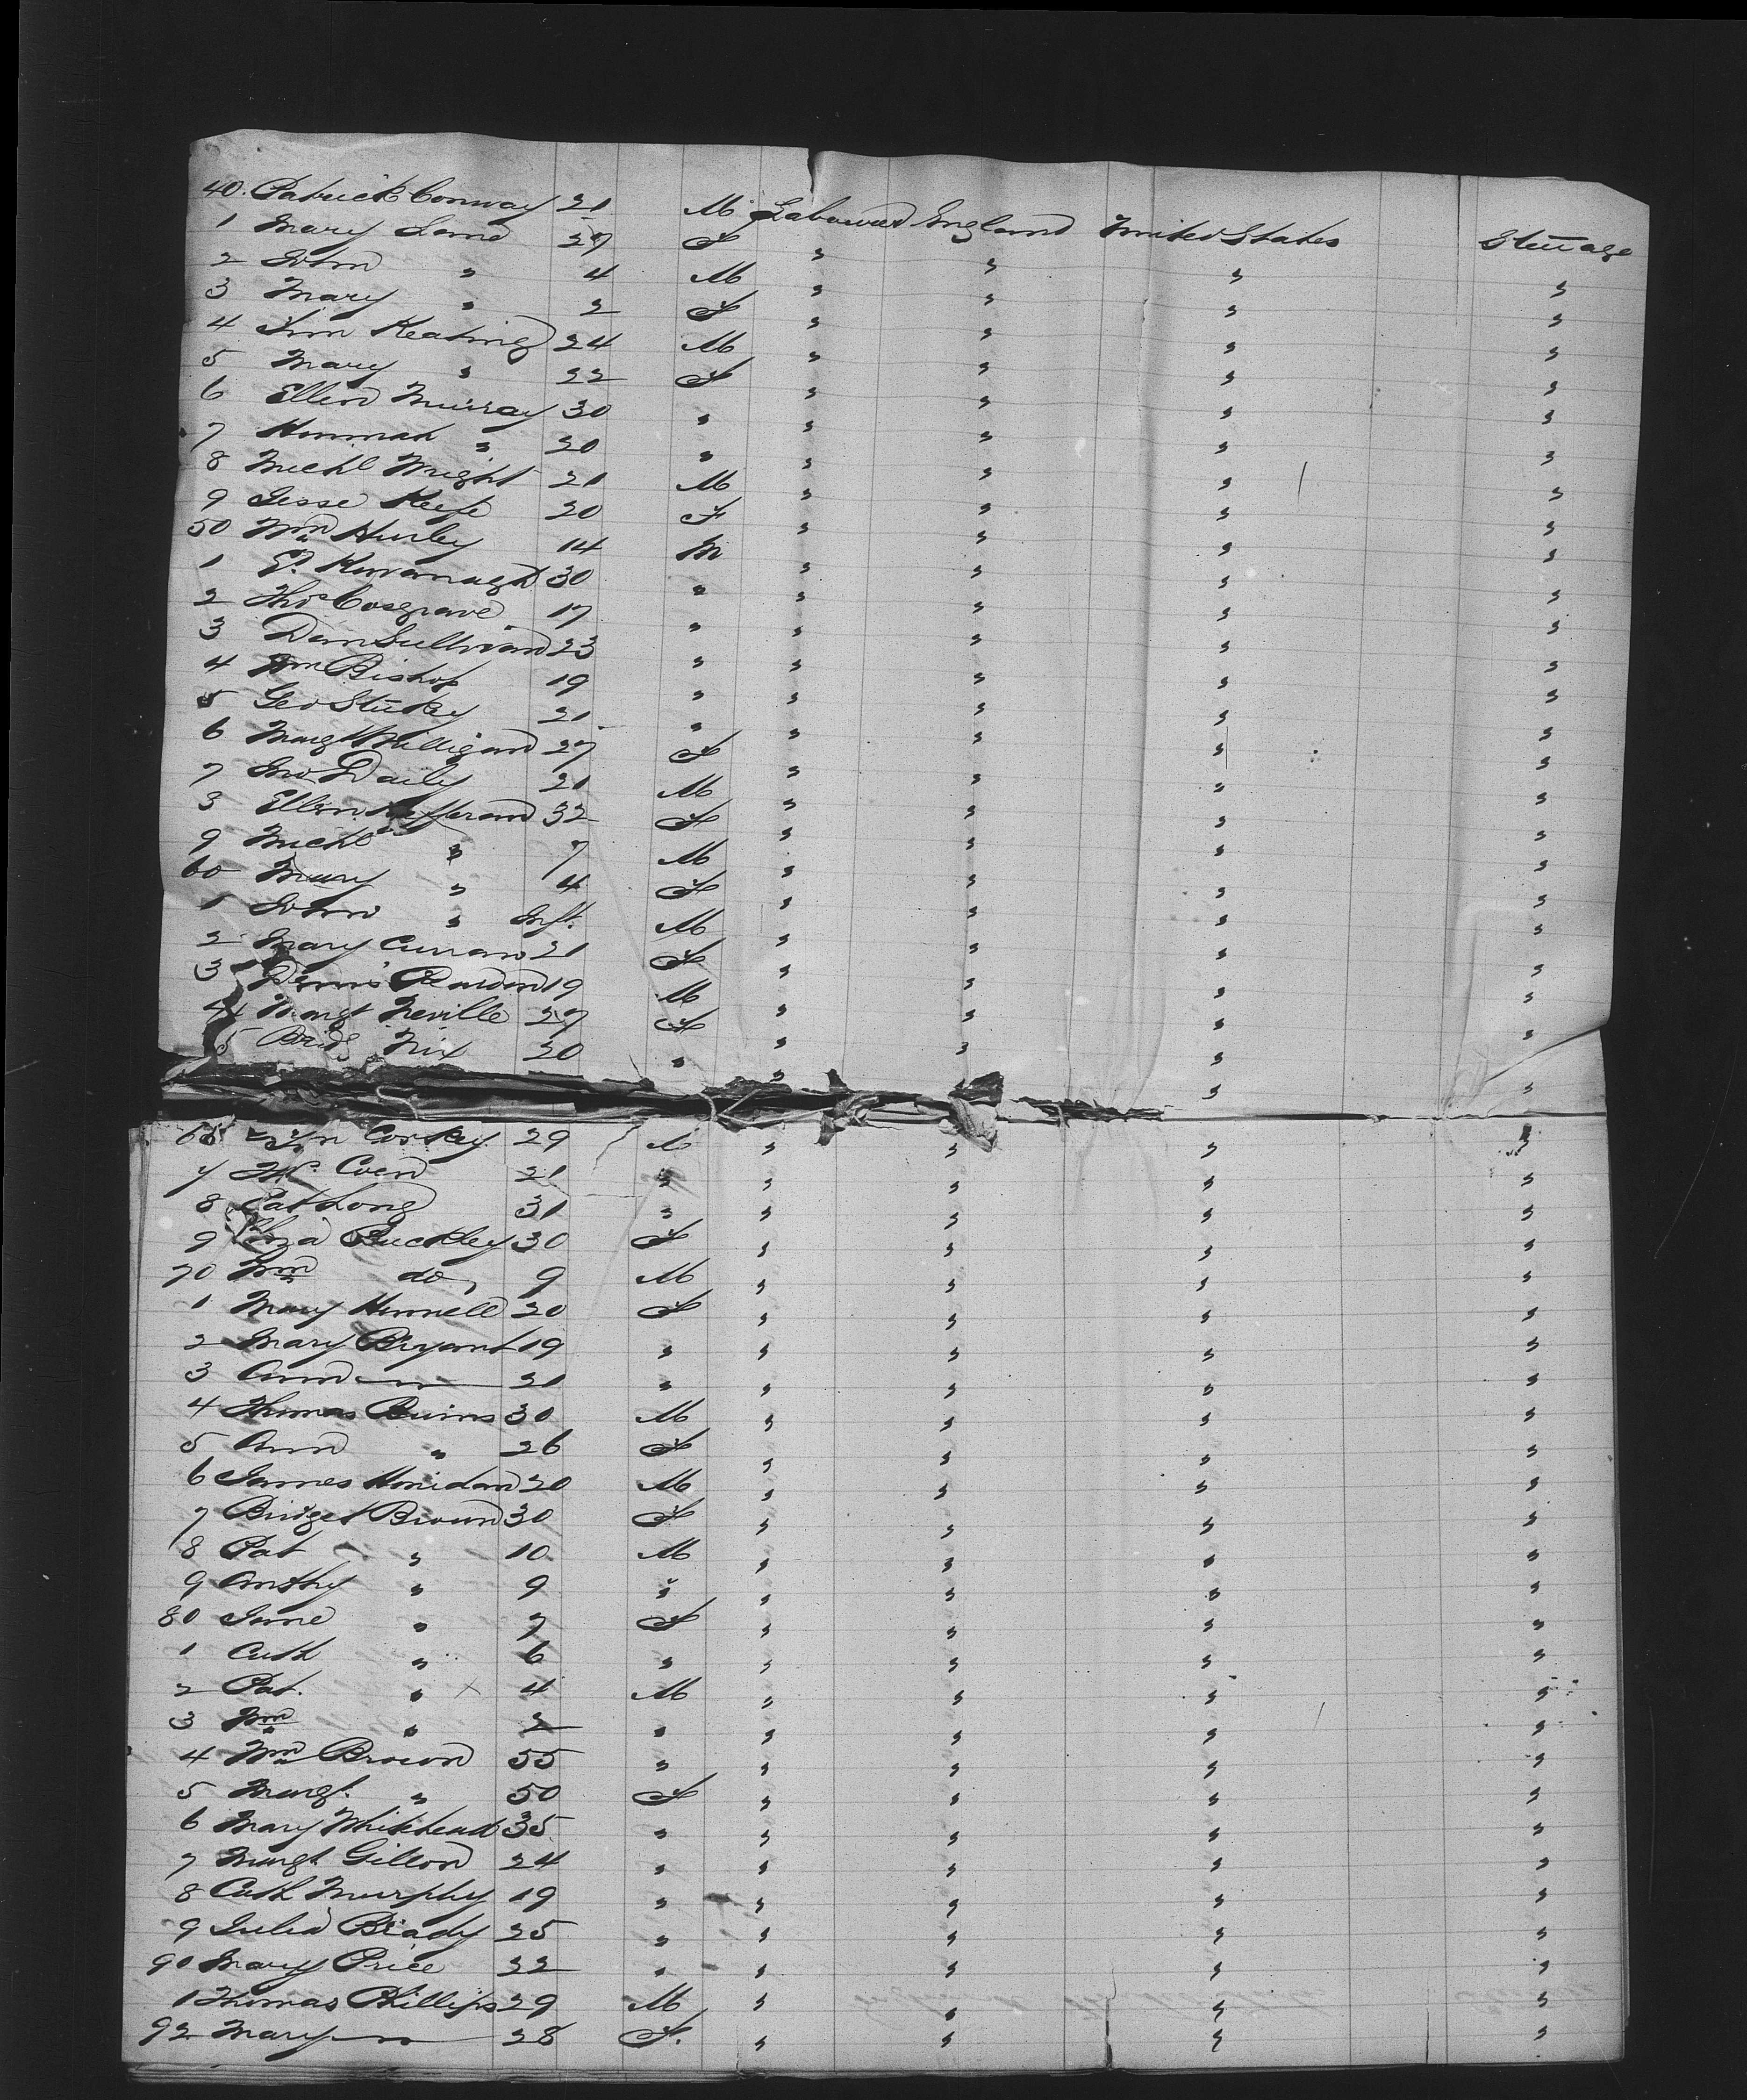 40. Patrick Conway 21 M Labourer England United States Steerage
1 Mary Land 27 F " " " "
2 John " 4 M " " " "
3 Mary " 2 F " " " "
4 Jim Keating 24 M " " " "
5 Mary " 22 F " " " "
6 Ellen Murray 30 " " " " "
7 Hannah " 20 " " " " "
8 Michl Wright 21 M " " " "
9 Jesse Keefe 20 F " " " "
50 Wm Hurley 14 M " " " "
1 Ed. Kavanagh 30 " " " " "
2 Thos Cosgrave 17 " " " " "
3 Dan Sullivan 23 " " " " "
4 Wm Bishop 19 " " " " "
5 Geo Stukey 21 " " " " "
6 Margt Milligan 27 F " " " "
7 Jno Daily 21 M " " " "
8 Ellen Hefferan 32 F " " " "
9 Michl " 7 M " " " "
60 Mary " 4 F " " " "
1 John " Inft. M " " " "
2 Mary Curran 21 F " " " "
3 Dennis Reardon 19 M " " " "
4 Margt Neville 27 F " " " "
5 Bridg Nix 20 " " " " "
66 Corkey 29 M " " " "
7 Coen 21 " " " " "
8 Pat Long 31 " " " " "
9 Eliza Buckley 30 F " " " "
70 Wm do, 9 M " " " "
1 Mary Hannell 20 F " " " "
2 Mary Bryant 19 " " " " "
3 Ann — " — 21 " " " " "
4 Thomas Burns 30 M " " " "
5 Ann " 26 F " " " "
6 James Honidan 20 M " " " "
7 Bridget Brown 30 F " " " "
8 Pat " 10 M " " " "
9 Anthy " 9 " " " " "
80 Jane " 7 F " " " "
1 Cath " 6 " " " " "
2 Pat. " × 4 M " " " "
3 Wm " 2 " " " " "
4 Wm Brown 55 " " " " "
5 Margt. " 50 F " " " "
6 Mary Whitehead 35 " " " " "
7 Margt Gillon 24 " " " " "
8 Cath Murphy 19 " " " " "
9 Julia Brady 25 " " " " "
90 Mary Price 22 " " " " "
1 Thomas Phillips 29 M " " " "
92 Mary — " — 28 F. " " " "